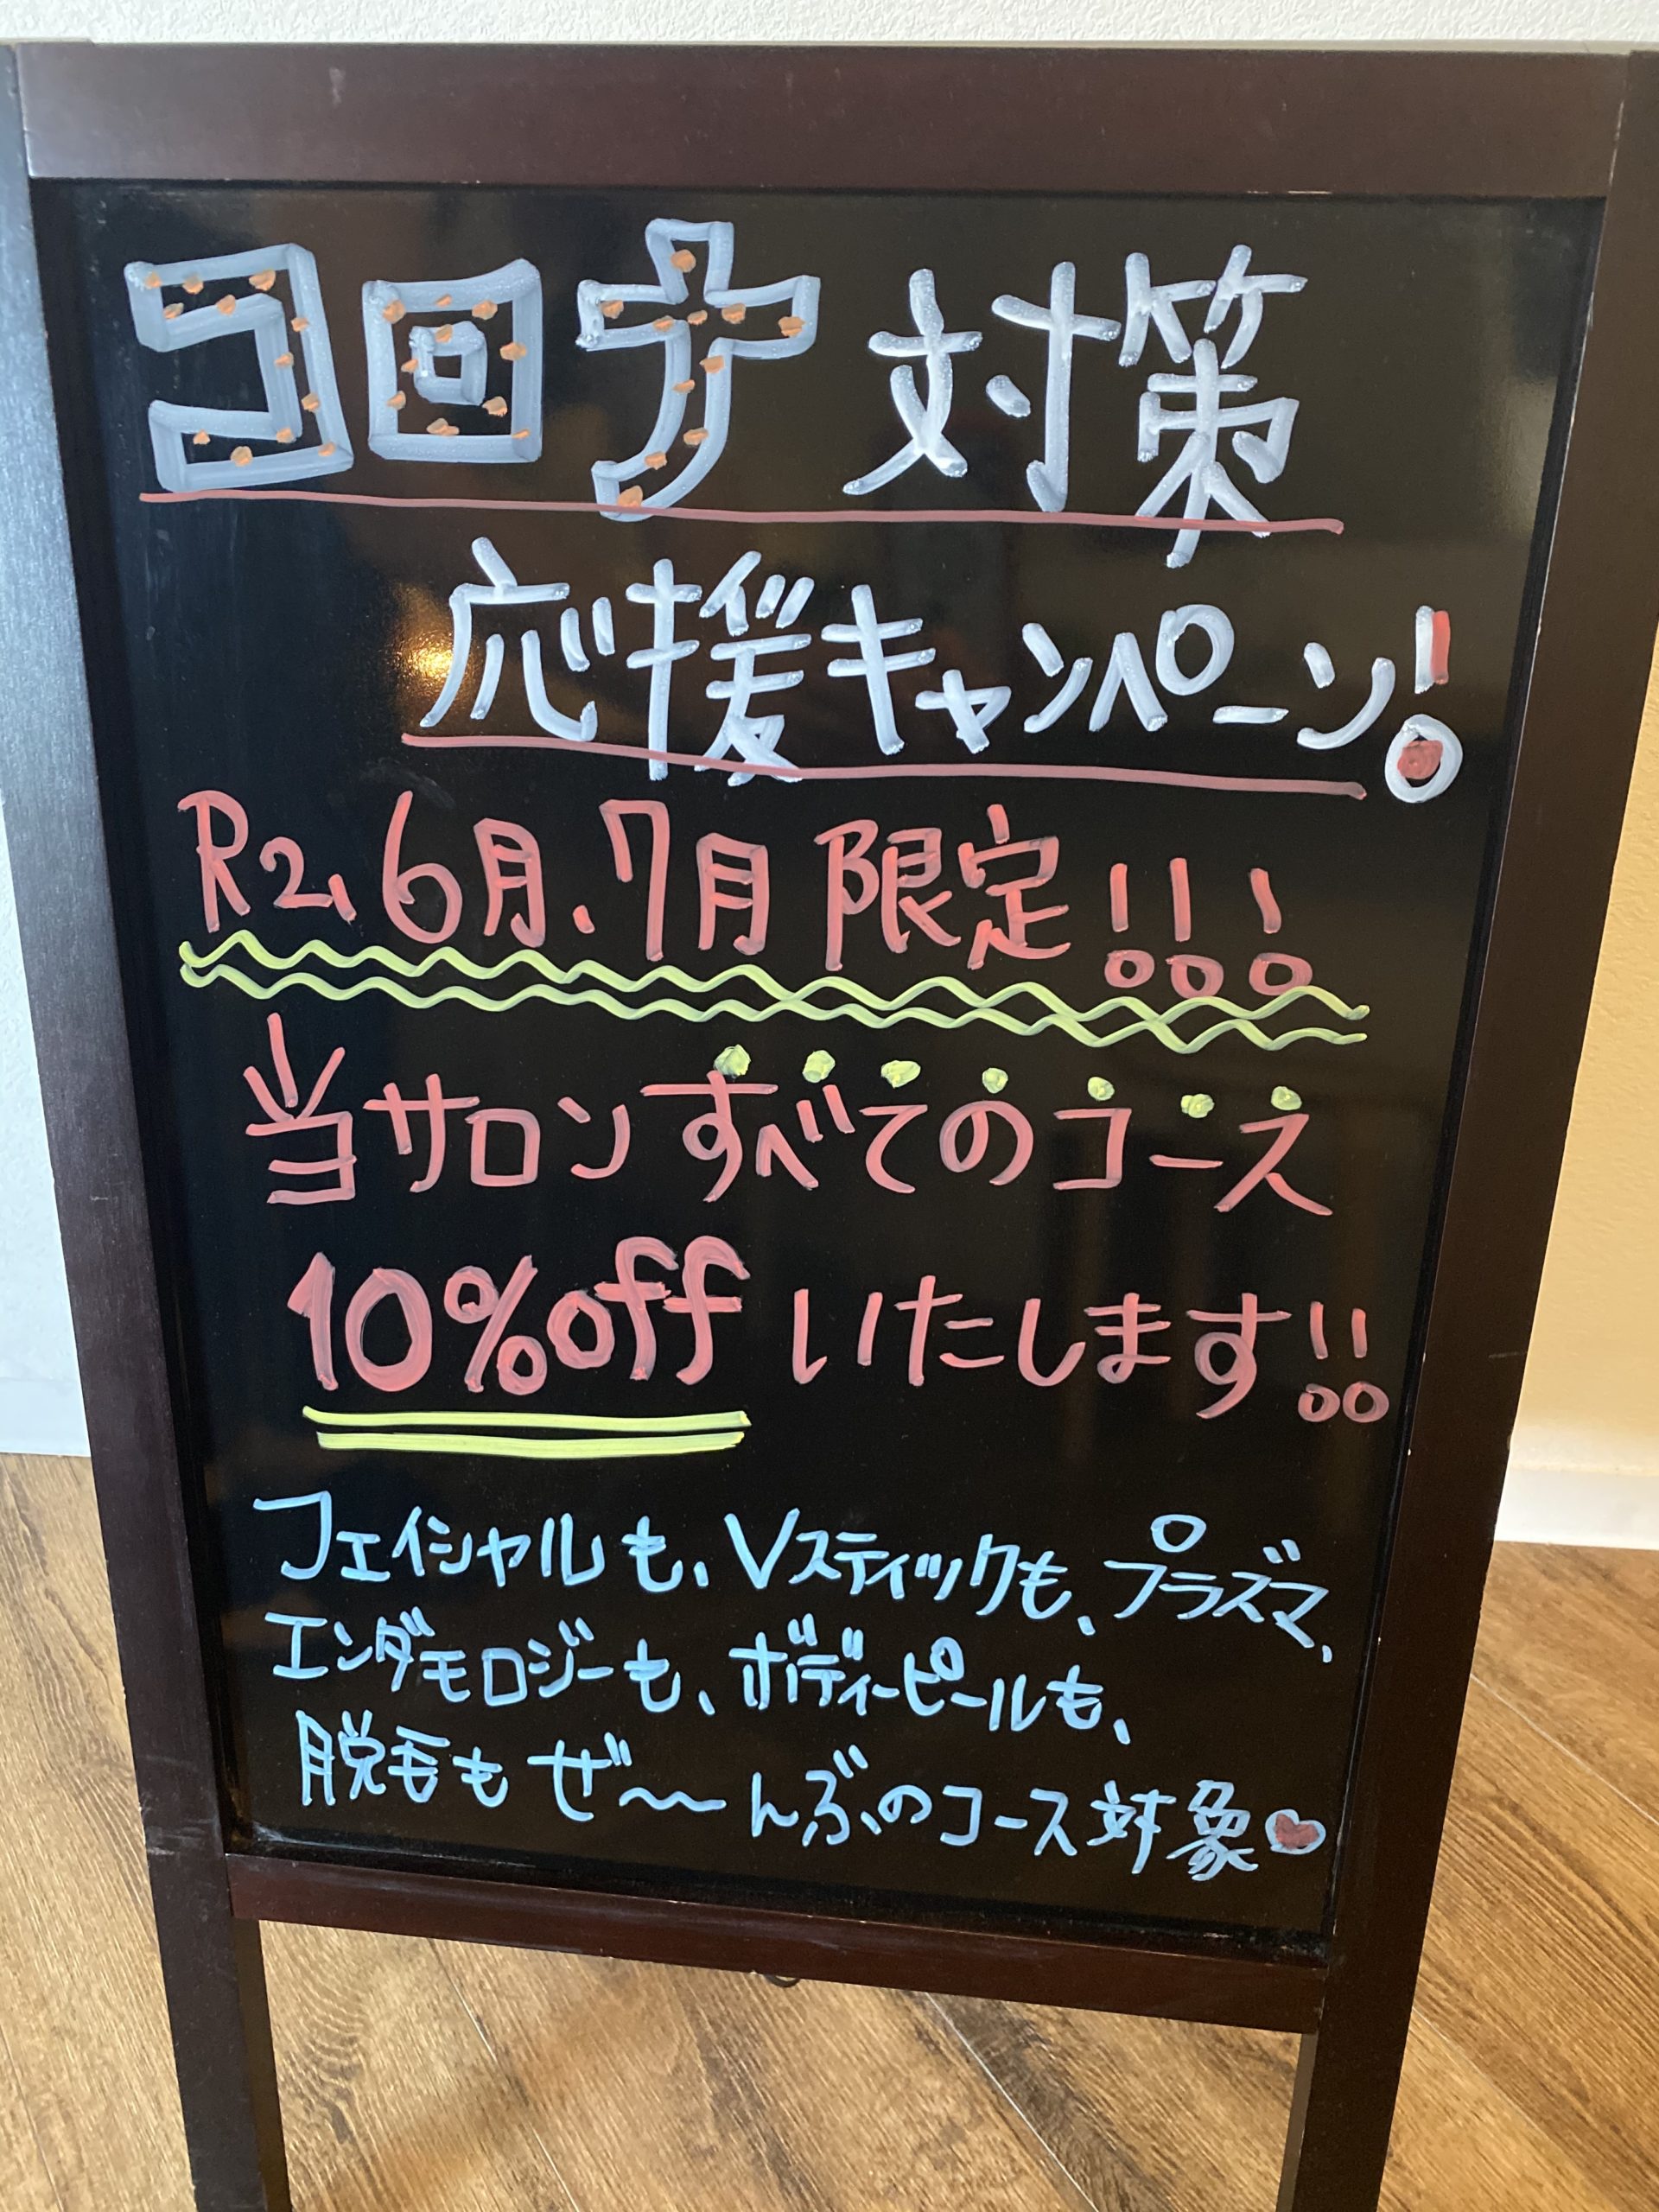 コロナ対策
応援キャンペーン!
R2、6月、7月限定!!!
当サロンすべてのコース
10%offいたします!!
フェイシャルも、Vスティックも、プラズマ、
エンダモロジーも、ボディーピールも、
脱毛もぜ〜〜んぶのコース対象♥